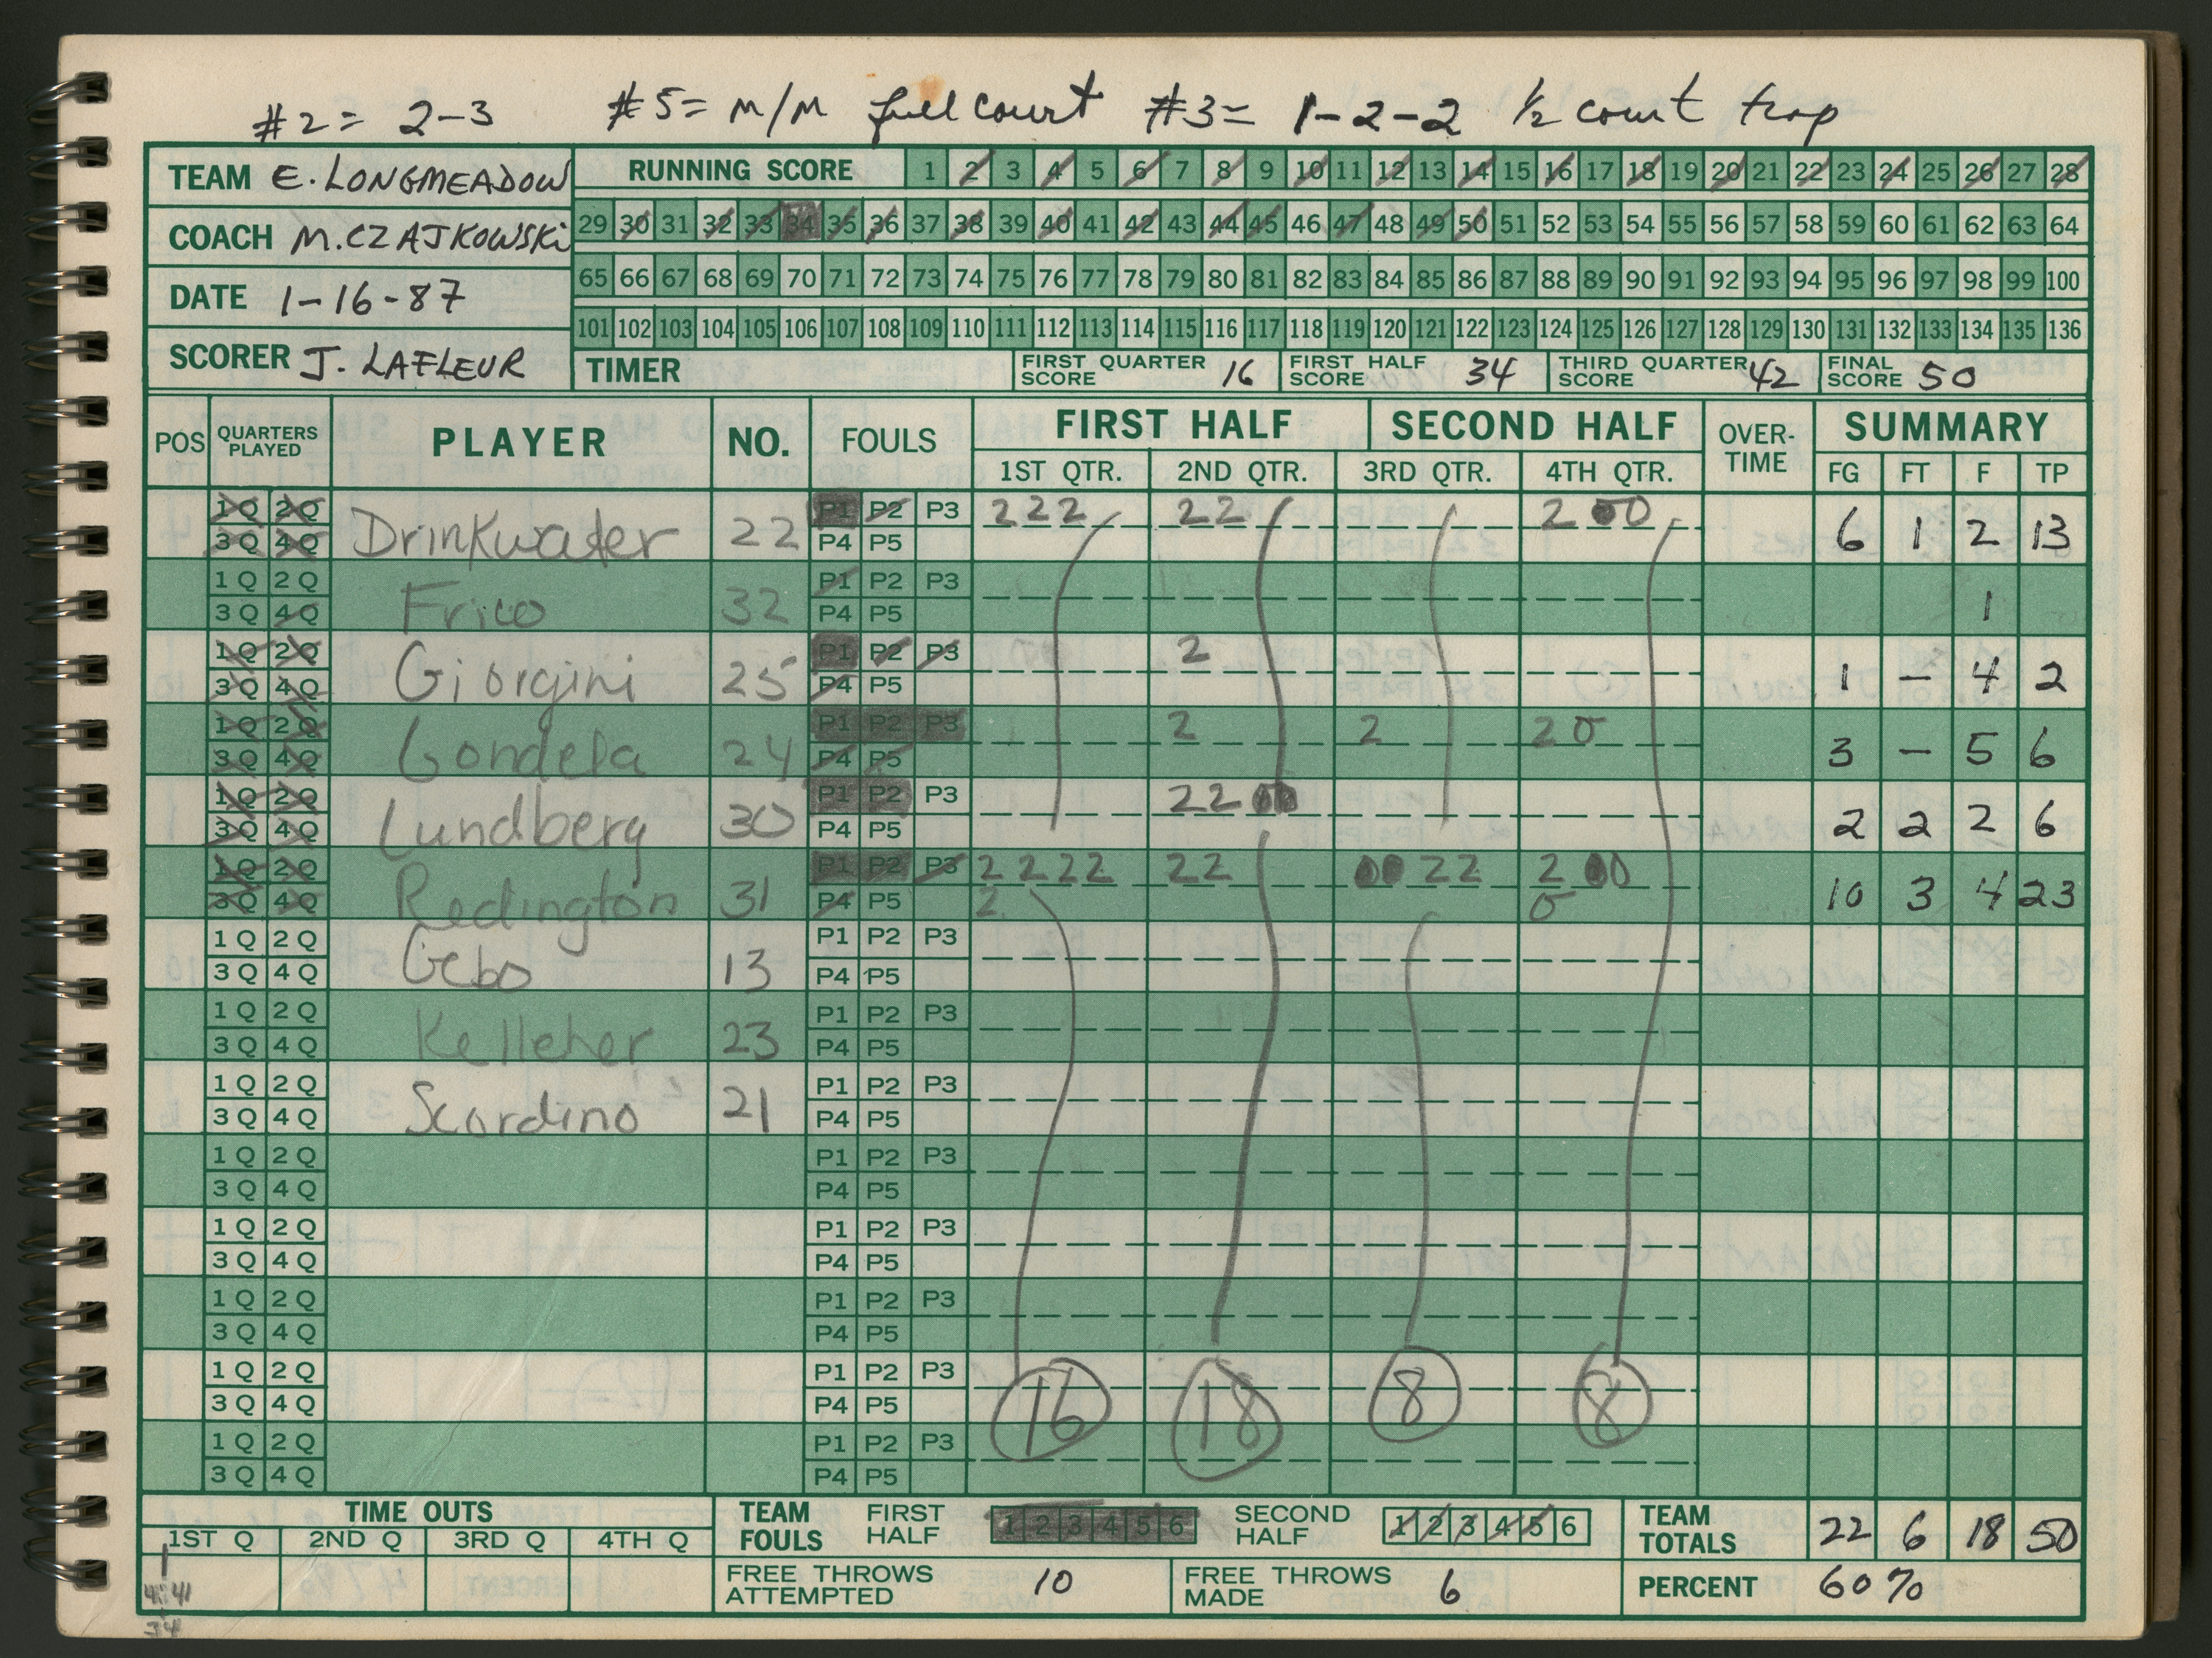 #2= 2-3 #5= M/M full court #3= 1-2-2 1/2 court trap
TEAM E. LONGMEADOW
COACH M. CZAJKOWSKi
DATE 1-16-87
SCORER J. LAFLEUR
RUNNING SCORE 1 2 3 4 5 6 7 8 9 10 11 12 13 14 15 16 17 18 19 20 21 22 23 24 25 26 27 28
29 30 31 32 33 34 35 36 37 38 39 40 41 42 43 44 45 46 47 48 49 50 51 52 53 54 55 56 57 58 59 60 61 62 63 64
65 66 67 68 69 70 71 72 73 74 75 76 77 78 79 80 81 82 83 84 85 86 87 88 89 90 91 92 93 94 95 96 97 98 99 100
101 102 103 104 105 106 107 108 109 110 111 112 113 114 115 116 117 118 119 120 121 122 123 124 125 126 127 128 129 130 131 132 133 134 135 136
TIMER FIRST QUARTER SCORE 16 FIRST HALF SCORE 34 THIRD QUARTER SCORE 42 FINAL SCORE 50
POS QUARTERS PLAYED PLAYER NO. FOULS FIRST HALF SECOND HALF OVER-TIME SUMMARY
1ST QTR. 2ND QTR. 3RD QTR. 4TH QTR. FG FT F TP
1Q 2Q P1 P2 P3 222 22 2 00
3Q 4Q Drinkwater 22 P4 P5 6 1 2 13
1Q 2Q P1 P2 P3
3Q 4Q Frico 32 P4 P5 1
1Q 2Q P1 P2 P3 2
3Q 4Q Giorgini 25 P4 P5 1 - 4 2
1Q 2Q P1 P2 P3 2 2 2 0
3Q 4Q Gondela 24 P4 P5 3 - 5 6
1Q 2Q P1 P2 P3 22 00
3Q 4Q Lundberg 30 P4 P5 2 2 2 6
1Q 2Q P1 P2 P3 2222 22 00 22 2 00
3Q 4Q Redington 31 P4 P5 2 0 10 3 4 23
1Q 2Q P1 P2 P3
3Q 4Q Gebo 13 P4 P5
1Q 2Q P1 P2 P3
3Q 4Q Kelleher 23 P4 P5
1Q 2Q P1 P2 P3
3Q 4Q Scordino 21 P4 P5
1Q 2Q P1 P2 P3
3Q 4Q P4 P5
1Q 2Q P1 P2 P3
3Q 4Q P4 P5
1Q 2Q P1 P2 P3
3Q 4Q P4 P5
1Q 2Q P1 P2 P3
3Q 4Q P4 P5 16 18 8 8
1Q 2Q P1 P2 P3
3Q 4Q P4 P5
TIME OUTS
1ST Q 2ND Q 3RD Q 4TH Q
1
4:41
34
TEAM FOULS FIRST HALF 1 2 3 4 5 6 SECOND HALF 1 2 3 4 5 6
TEAM TOTALS 22 6 18 50
FREE THROWS ATTEMPTED 10 FREE THROWS MADE 6 PERCENT 60%